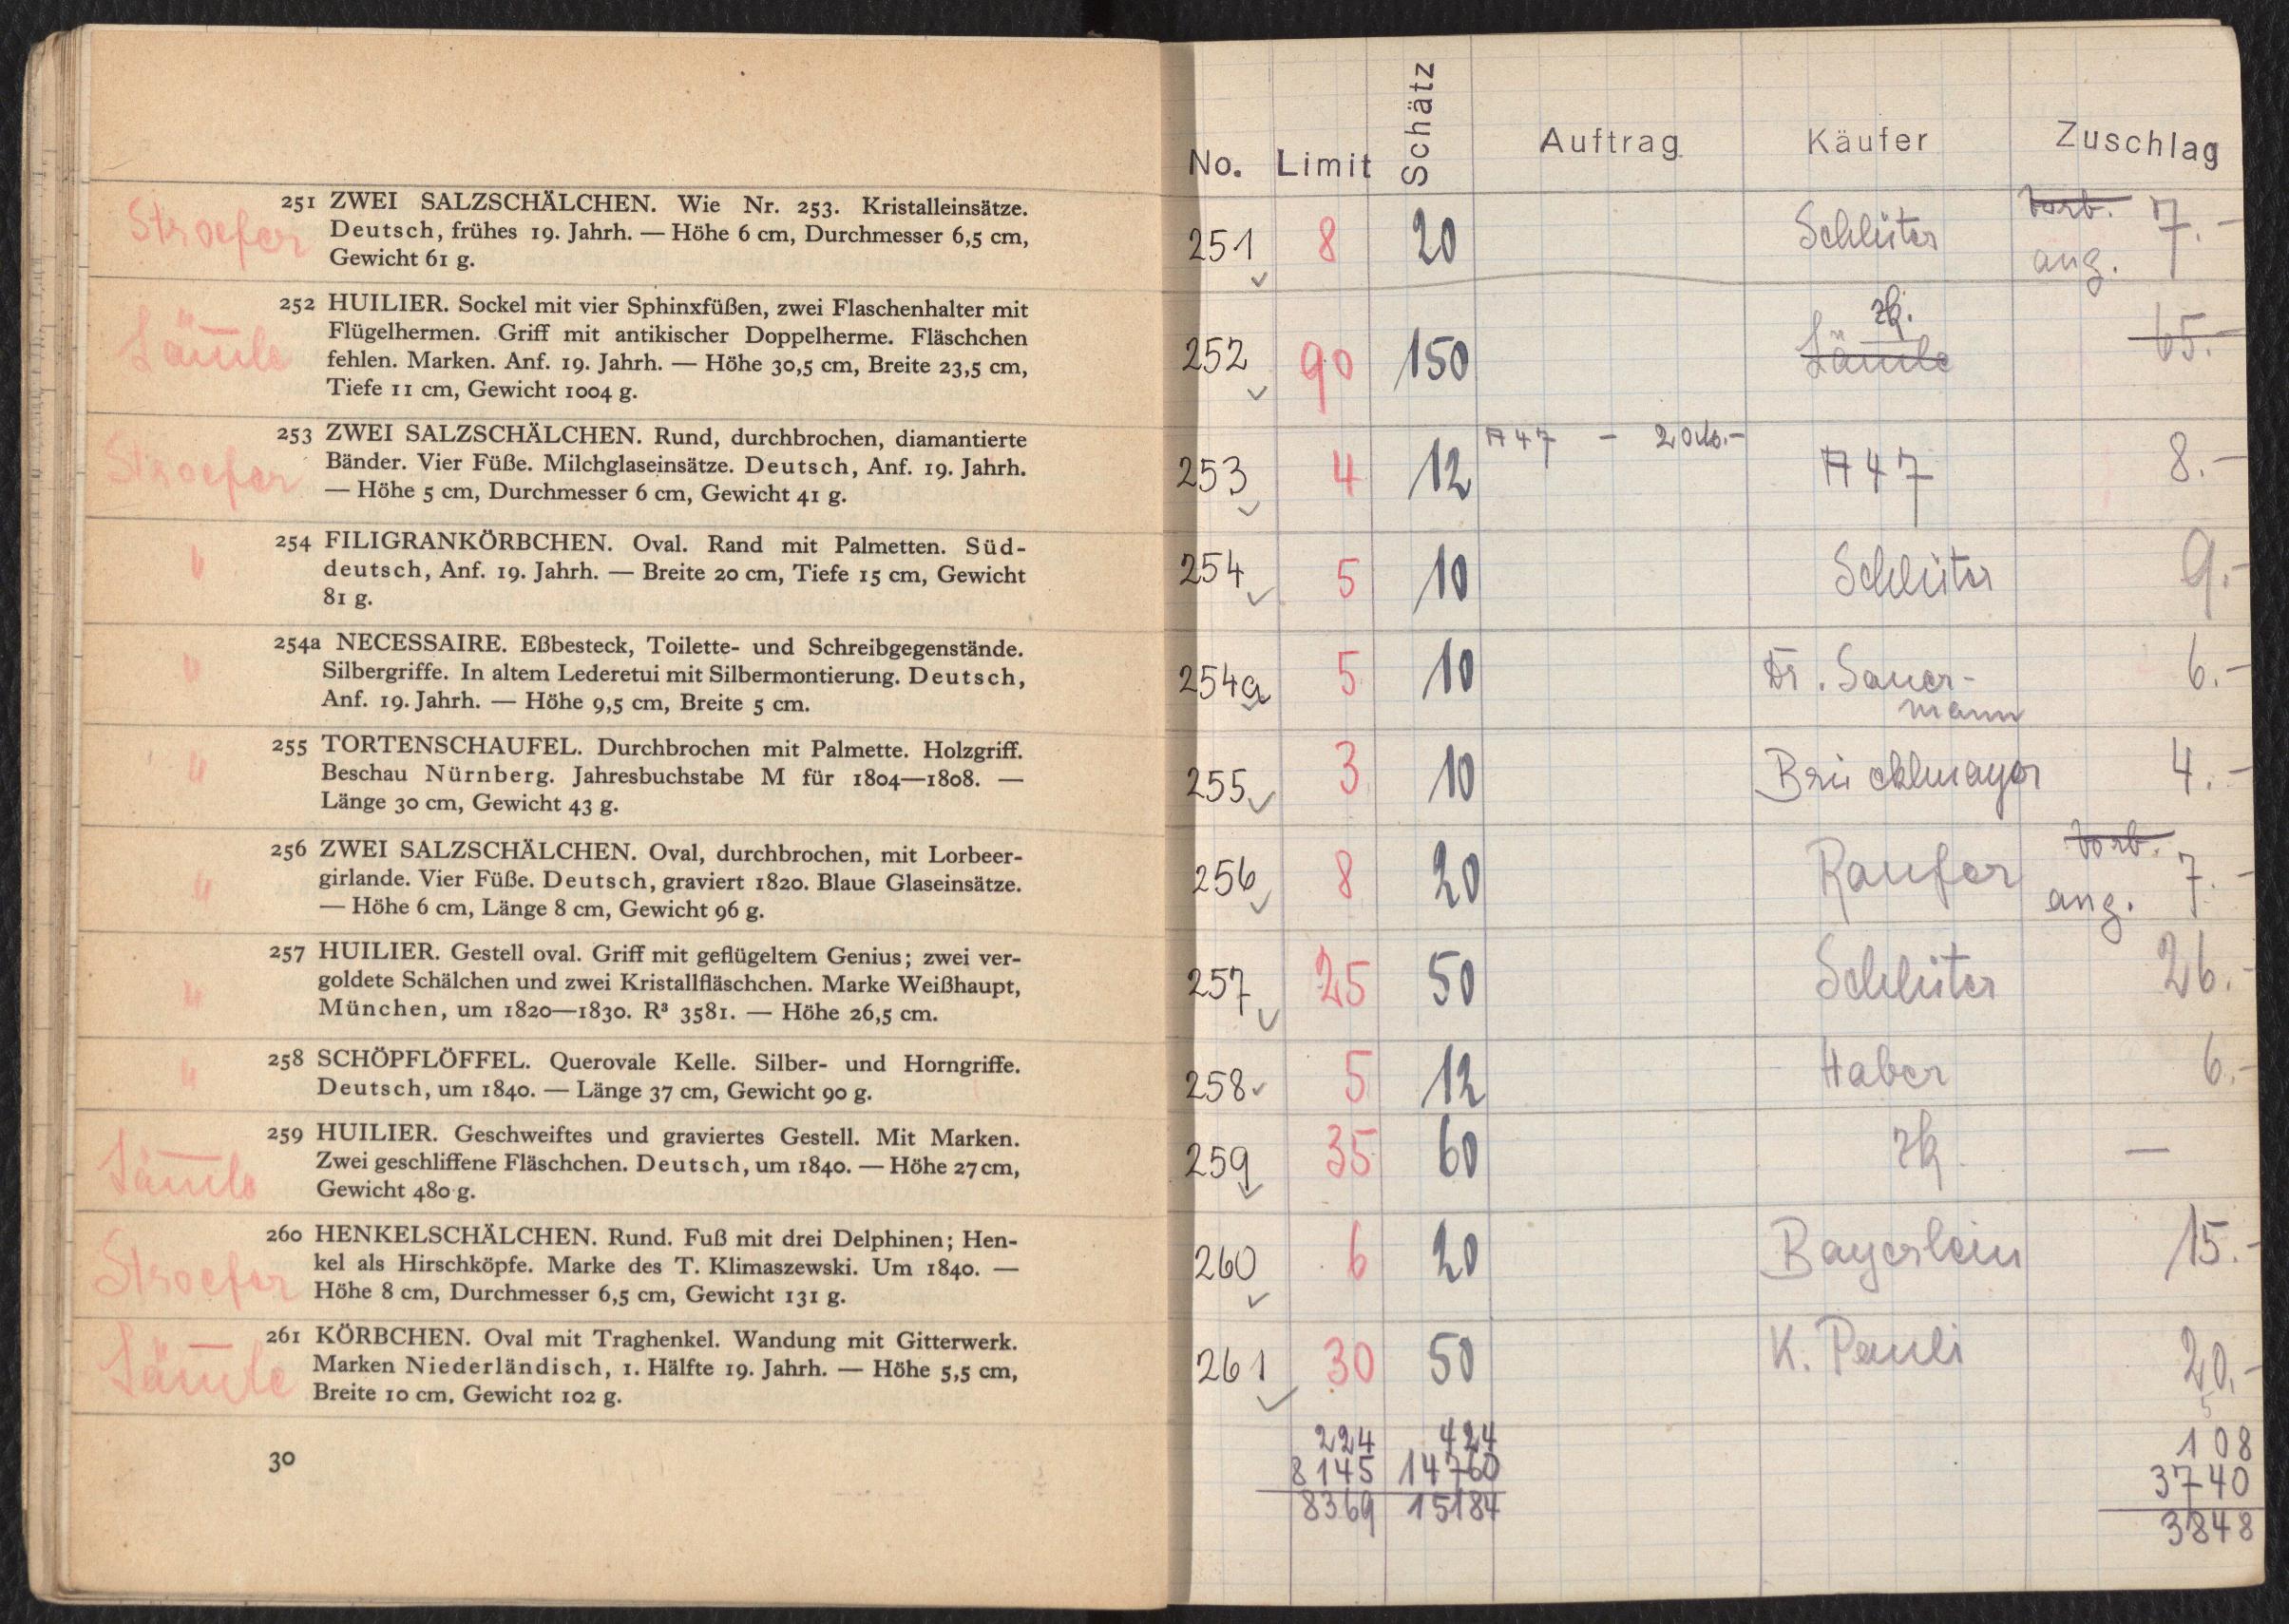 Stroefer
251 ZWEI SALZSCHÄLCHEN. Wie Nr. 253. Kristalleinsätze.
Deutsch, frühes 19. Jahrh. — Höhe 6 cm, Durchmesser 6,5 cm,
Gewicht 61 g.
Lämle
252 HUILIER. Sockel mit vier Sphinxfüßen, zwei Flaschenhalter mit
Flügelhermen. Griff mit antikischer Doppelherme. Fläschchen
fehlen. Marken. Anf. 19. Jahrh. — Höhe 30,5 cm, Breite 23,5 cm,
Tiefe 11 cm, Gewicht 1004 g.
Stroefer
253 ZWEI SALZSCHÄLCHEN. Rund, durchbrochen, diamantierte
Bänder. Vier Füße. Milchglaseinsätze. Deutsch, Anf. 19. Jahrh.
— Höhe 5 cm, Durchmesser 6 cm, Gewicht 41 g.
"
254 FILIGRANKÖRBCHEN. Oval. Rand mit Palmetten. Süd-
deutsch, Anf. 19. Jahrh. — Breite 20 cm, Tiefe 15 cm, Gewicht
81 g.
"
254a NECESSAIRE. Eßbesteck, Toilette- und Schreibgegenstände.
Silbergriffe. In altem Lederetui mit Silbermontierung. Deutsch,
Anf. 19. Jahrh. — Höhe 9,5 cm, Breite 5 cm.
"
255 TORTENSCHAUFEL. Durchbrochen mit Palmette. Holzgriff.
Beschau Nürnberg. Jahresbuchstabe M für 1804—1808. —
Länge 30 cm, Gewicht 43 g.
"
256 ZWEI SALZSCHÄLCHEN. Oval, durchbrochen, mit Lorbeer-
girlande. Vier Füße. Deutsch, graviert 1820. Blaue Glaseinsätze.
— Höhe 6 cm, Länge 8 cm, Gewicht 96 g.
"
257 HUILIER. Gestell oval. Griff mit geflügeltem Genius; zwei ver-
goldete Schälchen und zwei Kristallfläschchen. Marke Weißhaupt,
München, um 1820—1830. R³ 3581. — Höhe 26,5 cm.
"
258 SCHÖPFLÖFFEL. Querovale Kelle. Silber- und Horngriffe.
Deutsch, um 1840. — Länge 37 cm, Gewicht 90 g.
Lämle
259 HUILIER. Geschweiftes und graviertes Gestell. Mit Marken.
Zwei geschliffene Fläschchen. Deutsch, um 1840. — Höhe 27 cm,
Gewicht 480 g.
Stroefer
260 HENKELSCHÄLCHEN. Rund. Fuß mit drei Delphinen; Hen-
kel als Hirschköpfe. Marke des T. Klimaszewski. Um 1840. —
Höhe 8 cm, Durchmesser 6,5 cm, Gewicht 131 g.
Lämle
261 KÖRBCHEN. Oval mit Traghenkel. Wandung mit Gitterwerk.
Marken Niederländisch, 1. Hälfte 19. Jahrh. — Höhe 5,5 cm,
Breite 10 cm, Gewicht 102 g.
30
No. Limit Schätz Auftrag Käufer Zuschlag
251 8 20 Schlüter vorb. ang. 7.-
252 90 150 zk. Lämle 65.-
253 4 12 A 47 - 20 A 47 8.-
254 5 10 Schlüter 9.-
254a 5 10 Dr. Sauer-
mann 6.-
255 3 10 Brücklmayer 4.-
256 8 20 Raufer vorb. ang. 7.-
257 25 50 Schlüter 26.-
258 5 12 Haber 6.-
259 35 60 zk —
260 6 20 Bayerlein 15.-
261 30 50 K. Pauli 20.-
224 424 108
8145 14760 3740
8369 15184 3848